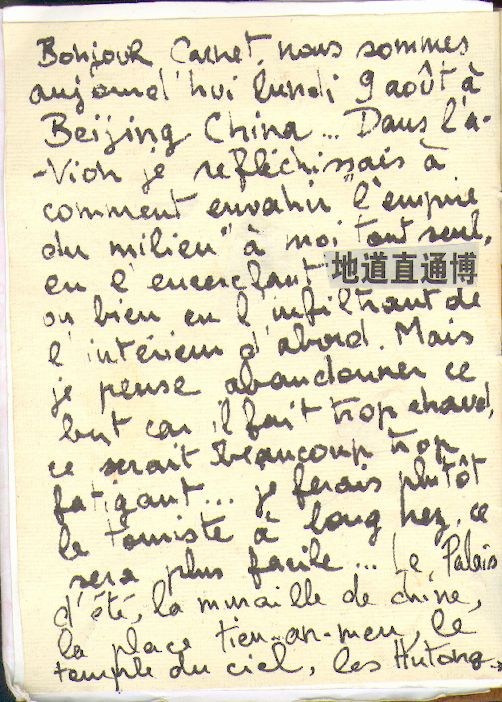 Bonjour Carnet, nous sommes
aujourd'hui lundi 9 août à
Beijing China... Dans l'a-
-vion je refléchissais à
comment envahir "l'empire
du milieu" à moi tout seul,
en l'encerclant 地道直通博
ou bien en l'infiltrant de
l'intérieur d'abord. Mais
je pense abandonner ce
but car il fait trop chaud,
ce serait beaucoup trop
fatigant... je ferais plutôt
le touriste à long nez, ce
sera plus facile... Le Palais
d'été, la muraille de chine,
la place tien-an-men, le
temple du ciel, les Hutong→